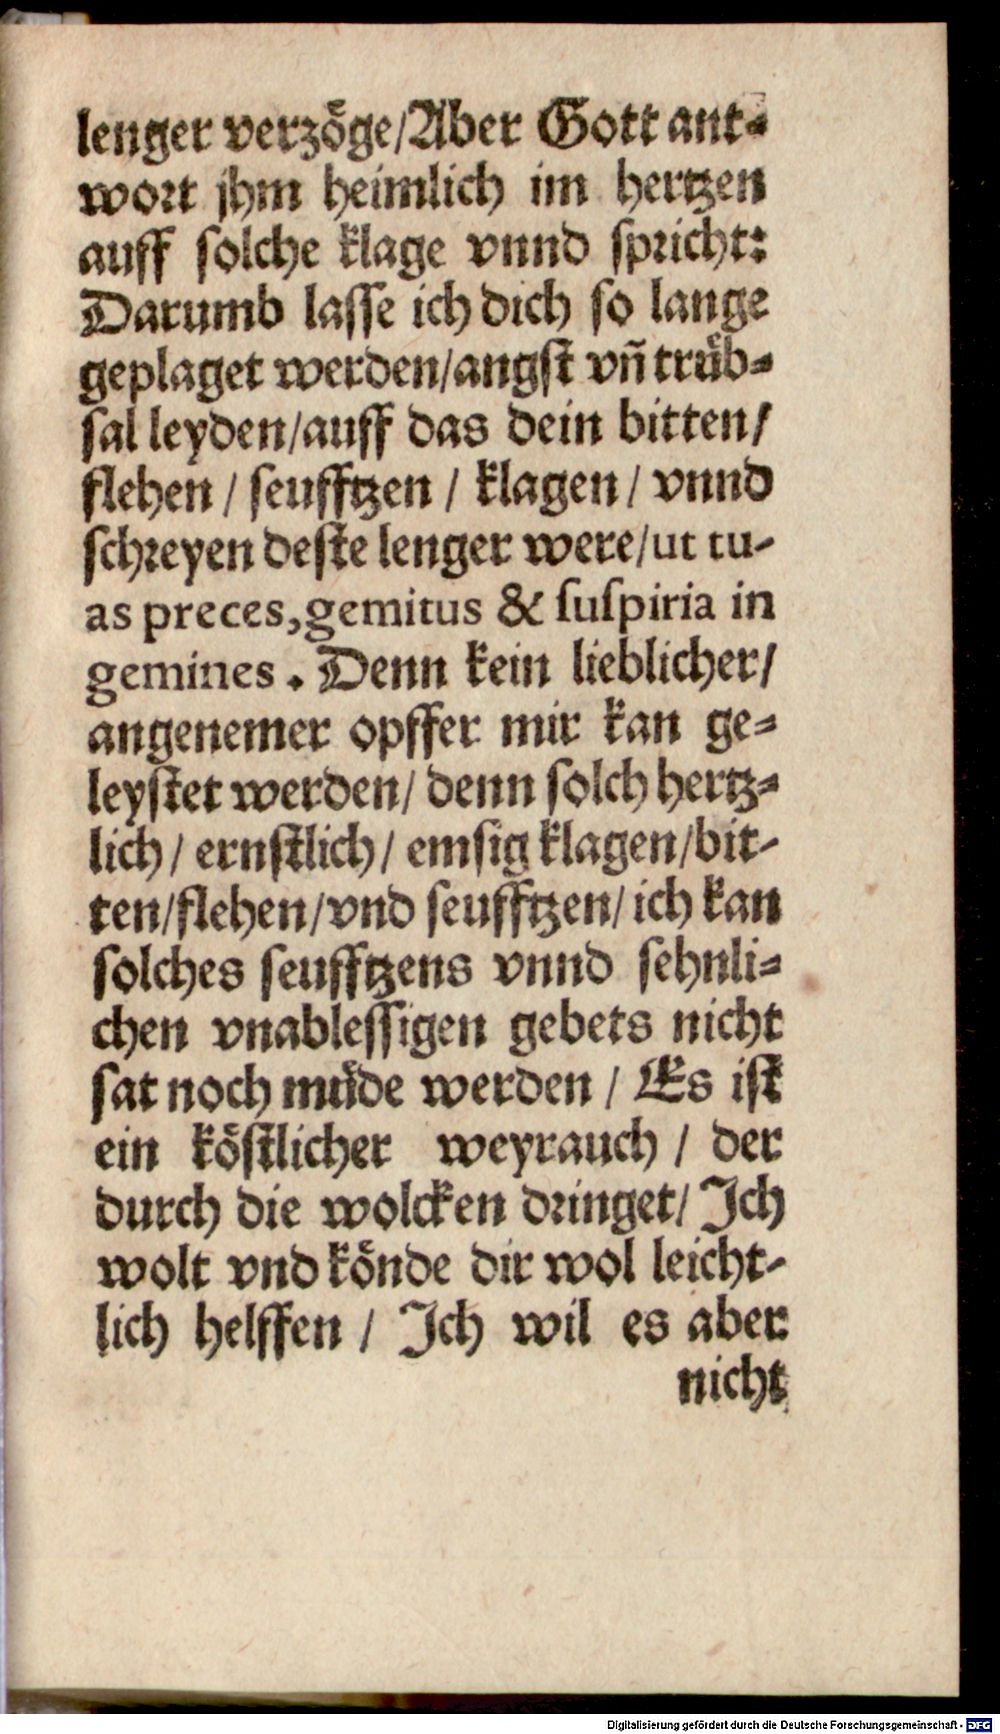 lenger verzöge/Aber Gott ant-
wort jhm heimlich im hertzen
auff solche klage vnnd spricht:
Darumb lasse ich dich so lange
geplaget werden/angst vñ trüb-
sal leyden/auff das dein bitten/
flehen / seufftzen / klagen / vnnd
schreyen deste lenger were/ut tu-
as preces, gemitus & suspiria in
gemines. Denn kein lieblicher/
angenemer opffer mir kan ge-
leystet werden/ denn solch hertz-
lich / ernstlich / emsig klagen/bit-
ten/flehen/vnd seufftzen/ ich kan
solches seufftzens vnnd sehnli-
chen vnablessigen gebets nicht
sat noch müde werden / Es ist
ein köstlicher weyrauch / der
durch die wolcken dringet/ Ich
wolt vnd könde dir wol leicht-
lich helffen / Ich wil es aber
nicht
Digitalisierung gefördert durch die Deutsche Forschungsgemeinschaft - DFG